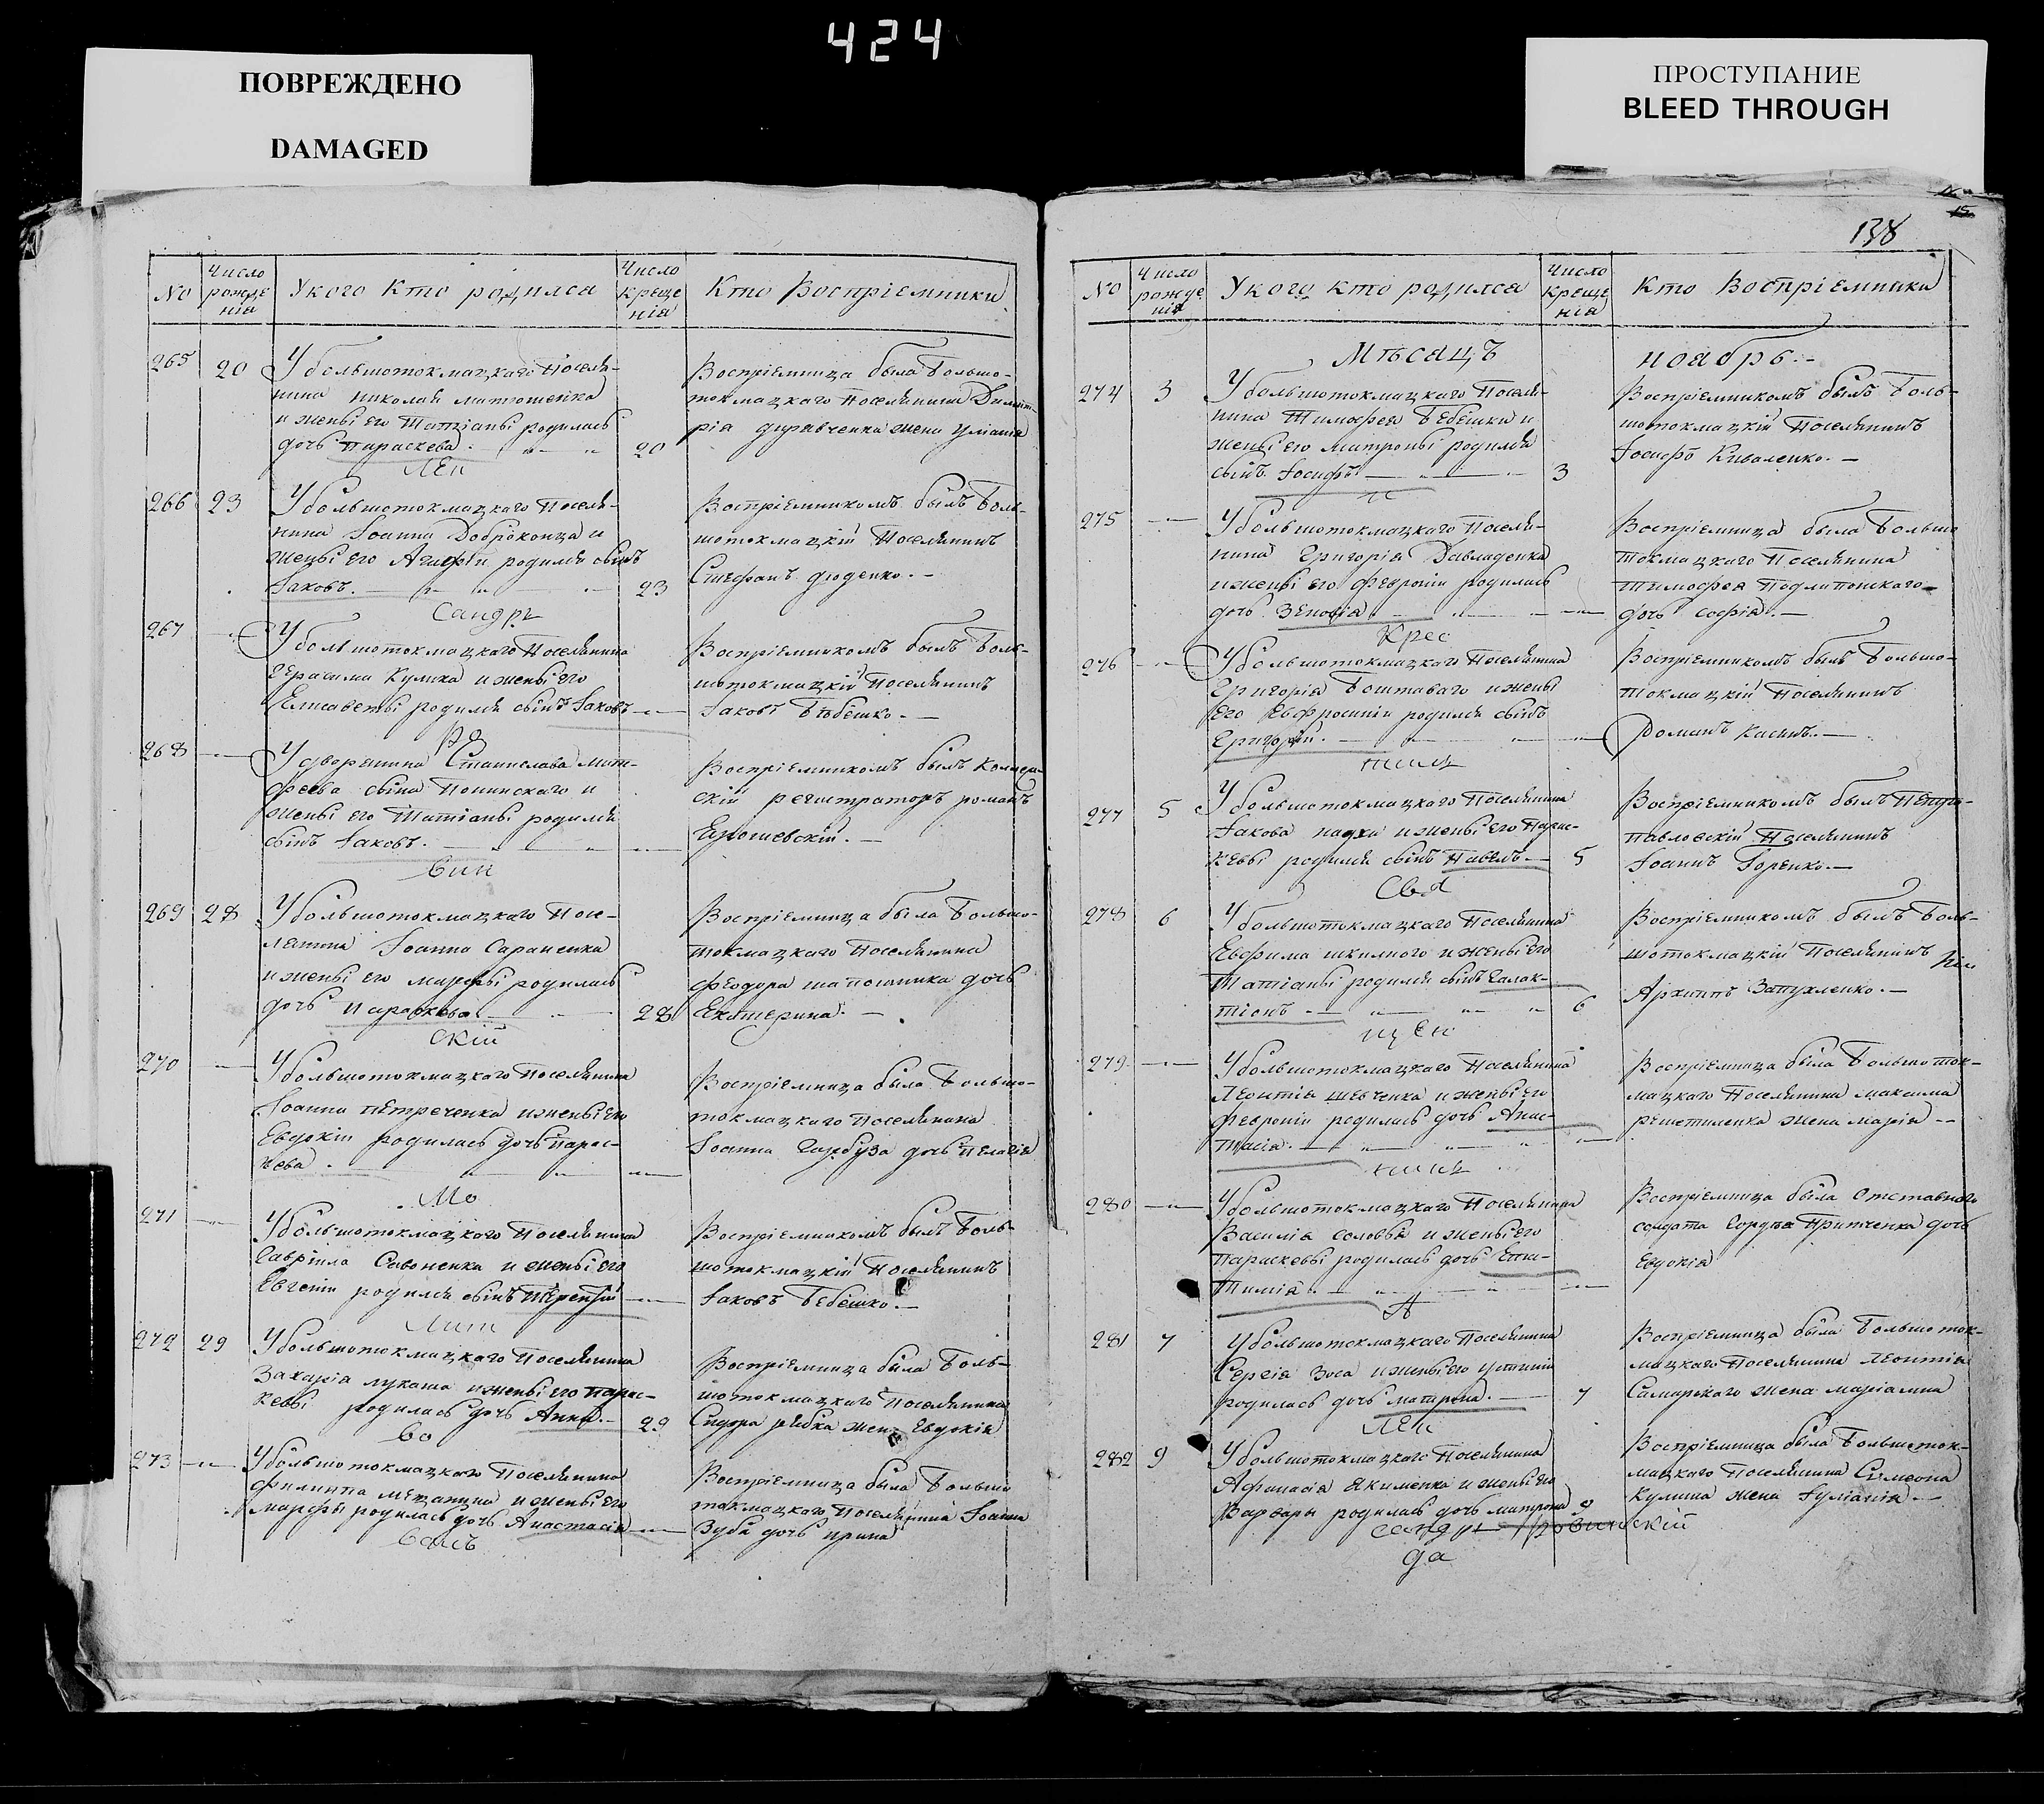 424
ПОВРЕЖДЕНО
DAMAGED
ПРОСТУПАНИЕ
BLEED THROUGH
138
№
Число рожде нія
У кого кто родился
Число креще нія
Кто Воспріемники
265 20 У большотокмацкаго Поселя-
нина Николая Матюшенка
и жены его Татіаны родилась
дочь Параскева. 20
Воспріемница была Большо-
токмацкаго Поселянина Димит-
рія жена Уліанія
Лен
266 23 У большотокмацкаго Поселя-
нина Іоанна Доброконца и
жены его Агафіи родился сынъ
Іаковъ. 23
Воспріемникомъ былъ Боль-
шотокмацкій Поселянинъ
Стефанъ Дюденко.
Сандръ
267 У большотокмацкаго Поселянина
Герасима Кулика и жены его
Елисаветы родился сынъ Іаковъ
Воспріемникомъ былъ Боль-
шотокмацкій Поселянинъ
Іаковъ Бебешко.
ро
268 У дворянина Станислава Мат-
феева сына Понинскаго и
жены его Татіаны родился
сынъ Іаковъ.
Воспріемникомъ былъ
скій регистраторъ романъ
вин
269 28 У большотокмацкаго Посе-
лянина Іоанна Сараненка
и жены его Марфы родилась
дочь Параскева. 28
Воспріемница была Большо-
токмацкаго Поселянина
Феодора шапошника дочь
Екатерина.
скій
270 У большотокмацкаго Поселянина
Іоанна Петреченка и жены его
Евдокіи родилась дочь Парас-
кева.
Воспріемница была Большо-
токмацкаго Поселянина
Іоанна Гарбуза дочь Пелагія
Мо
271 У большотокмацкаго Поселянина
Гавріила Савоненка и жены его
Евгеніи родился сынъ Терентій
Воспріемникомъ былъ Боль-
шотокмацкій Поселянинъ
Іаковъ Бебешко.
лит
272 29 У большотокмацкаго Поселянина
Захарія лукаша и жены его Парас-
кевы родилась дочь Анна. 29
Воспріемница была Боль-
шотокмацкаго Поселянина
Сидора рябка жена Евдокія
во
273 У большотокмацкаго Поселянина
филиппа мещанина и жены его
марфы родилась дочь Анастасія
Воспріемница была Большо
токмацкаго Поселянина Іоанна
Зуба дочь ирина
валъ
№
Число рожде нія
У кого кто родился
Число креще нія
Кто Воспріемники
Мѣсяцъ ноябрь.
274 3 У большотокмацкаго Поселя-
нина Тимофея Бебешки и
жены его матроны родился
сынъ Іосифъ. 3
Воспріемникомъ былъ Боль-
шотокмацкій Поселянинъ
Іосифъ Коваленко.
275 У большотокмацкаго Поселя-
нина Григорія Давладенка
и жены его Февроніи родилась
дочь Зеновія.
Воспріемница была Большо
токмацкаго Поселянина
Тимофея Подлипенскаго
дочь софія.
Крес
276 У большотокмацкаго Поселянина
Григорія Боштаваго и жены
его Евфросиніи родился сынъ
Григорій.
Воспріемникомъ былъ Большо-
токмацкій Поселянинъ
Романъ Касинъ.
277 5 У большотокмацкаго Поселянина
Іакова и жены его Парас-
кевы родился сынъ Павелъ. 5
Воспріемникомъ былъ Петро-
павловскій Поселянинъ
Іоанъ Горенко.
Свя
278 6 У большотокмацкаго Поселянина
Евфима шкилнего и жены его
Татіаны родился сынъ Галак-
тіонъ. 6
Воспріемникомъ былъ Боль-
шотокмацкій Поселянинъ
Архиппъ Запухленко.
щен
279 У большотокмацкаго Поселянина
Леонтія шевченка и жены его
февроніи родилась дочь Анас-
тасія.
Воспріемница была Большоток-
мацкаго Поселянина максима
решетиленка жена марія
никъ
280 У большотокмацкаго Поселянина
Василія соловья и жены его
Параскевы родилась дочь Епи-
тимія
Воспріемница была Отставнаго
солдата Гордѣя Притченка дочь
Евдокія
А
281 7 У большотокмацкаго Поселянина
Сергія Зоса и жены его Устиніи
родилась дочь матрона. 7
Воспріемница была Большоток-
мацкаго Поселянина Леонтія
Самарскаго жена маріанна
лек
282 9 У большотокмацкаго Поселянина
Афанасія Якименка и жены его
Варвары родилась дочь матрона 9
Воспріемница была Большоток-
мацкаго Поселянина Симеона
Кулиша жена Іуліанія
сандръ
да